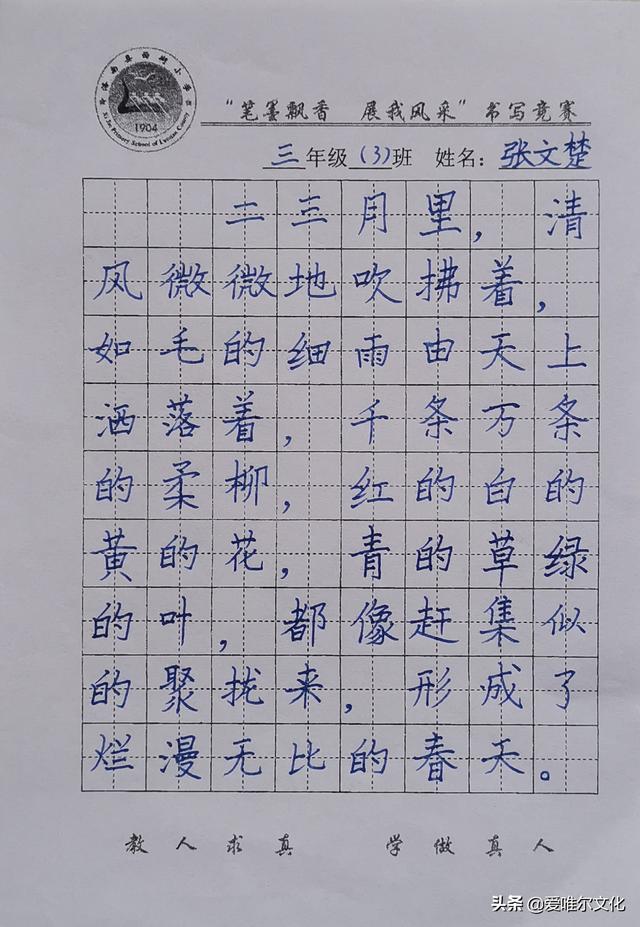 1904
“笔墨飘香 展我风采”书写竞赛
三年级(3)班 姓名：张文楚
二三月里，清
风微微地吹拂着，
如毛的细雨由天上
洒落着，千条万条
的柔柳，红的白的
黄的花，青的草绿
的叶，都像赶集似
的聚拢来，形成了
烂漫无比的春天。
教人求真 学做真人
头条 @爱唯尔文化